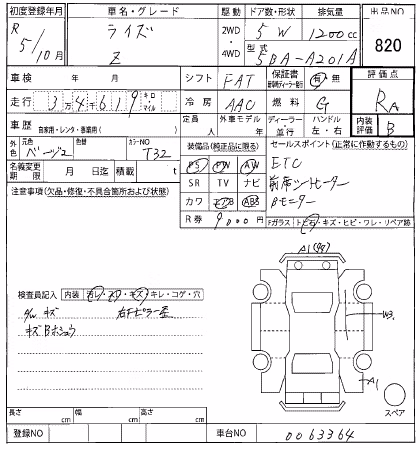 初度登録年月 車名・グレード 駆動 ドア数・形状 排気量 出品NO
R 5/10月 ライズ Z 2WD・4WD 5 W 1200cc 820
型式 5BA-A201A
車検 年 月 シフト FAT 保証書 有・無 評価点
走行 3万4千619 キロ マイル 冷房 AAC 燃料 G RA
車歴 自家用・レンタ・事業用( ) 定員 人 外車モデル 年 ディーラー・並行 ハンドル 左・右 内装評価 B
外色 元色 ベージュ 色替 カラーNO T32 装備品(純正品に限る) セールスポイント(正常に作動するもの)
名義変更期限 月 日迄 積載 t PS PW AW ETC
注意事項(欠品・修復・不具合箇所および状態) SR TV ナビ 前席シートヒーター
カワ エアB ABS Bモニター
R券 9000円 Fガラス トビ石・キズ・ヒビ・ワレ・リペア跡
A1
検査員記入 内装 汚レ・スレ・キズ・キレ・コゲ・穴
A/W キズ 右Fピラー
キズ
W3
A1
スペア
長さ cm 幅 cm 高さ cm
登録NO 車台NO 0063364